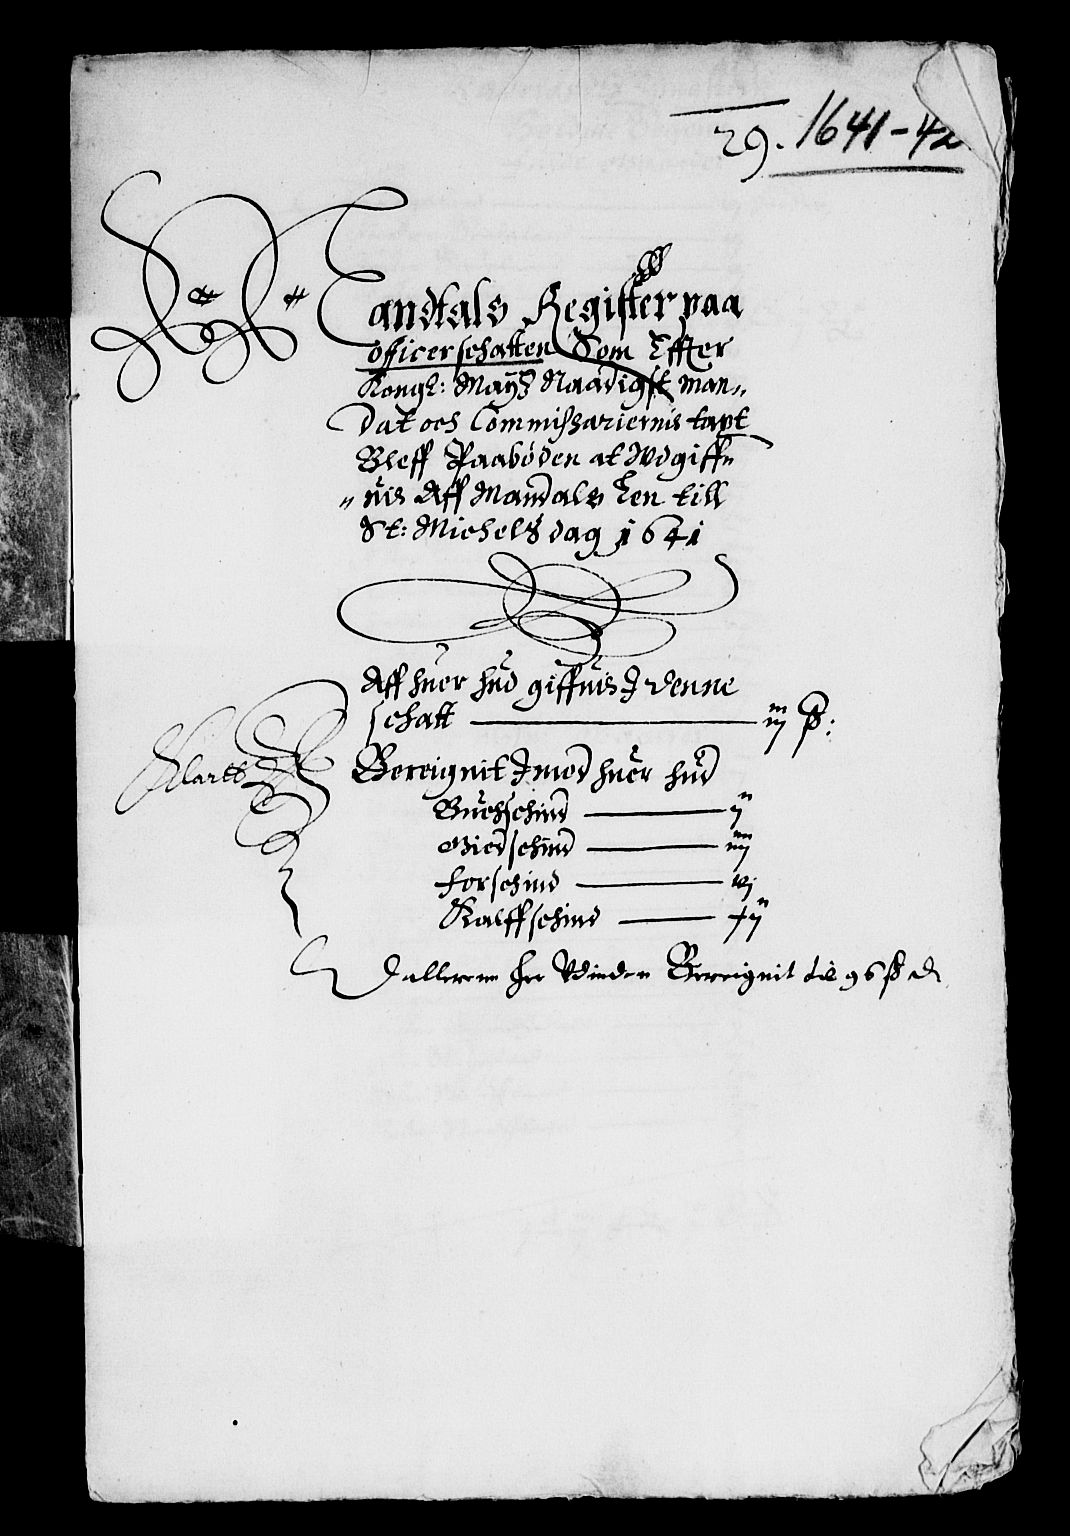 29. 1641-42
Mandtals Register paa
officerschatten Som Effter
Kongl: Mayß Naadigst man„
dat och Commissariernis
Bleff Paaböden at Wdgiff„
„uis Aff Mandals Len till
St: Michels dag 1641
Aff huer hud giffuis I denne
schatt — iij ß:
Bereignit Imod huer hud
Buchschind — ij
Giedschind — iiij
forschind — vj
Kalffschind — xij
Dallerenn her Vdinden Bereignit til 96 ß